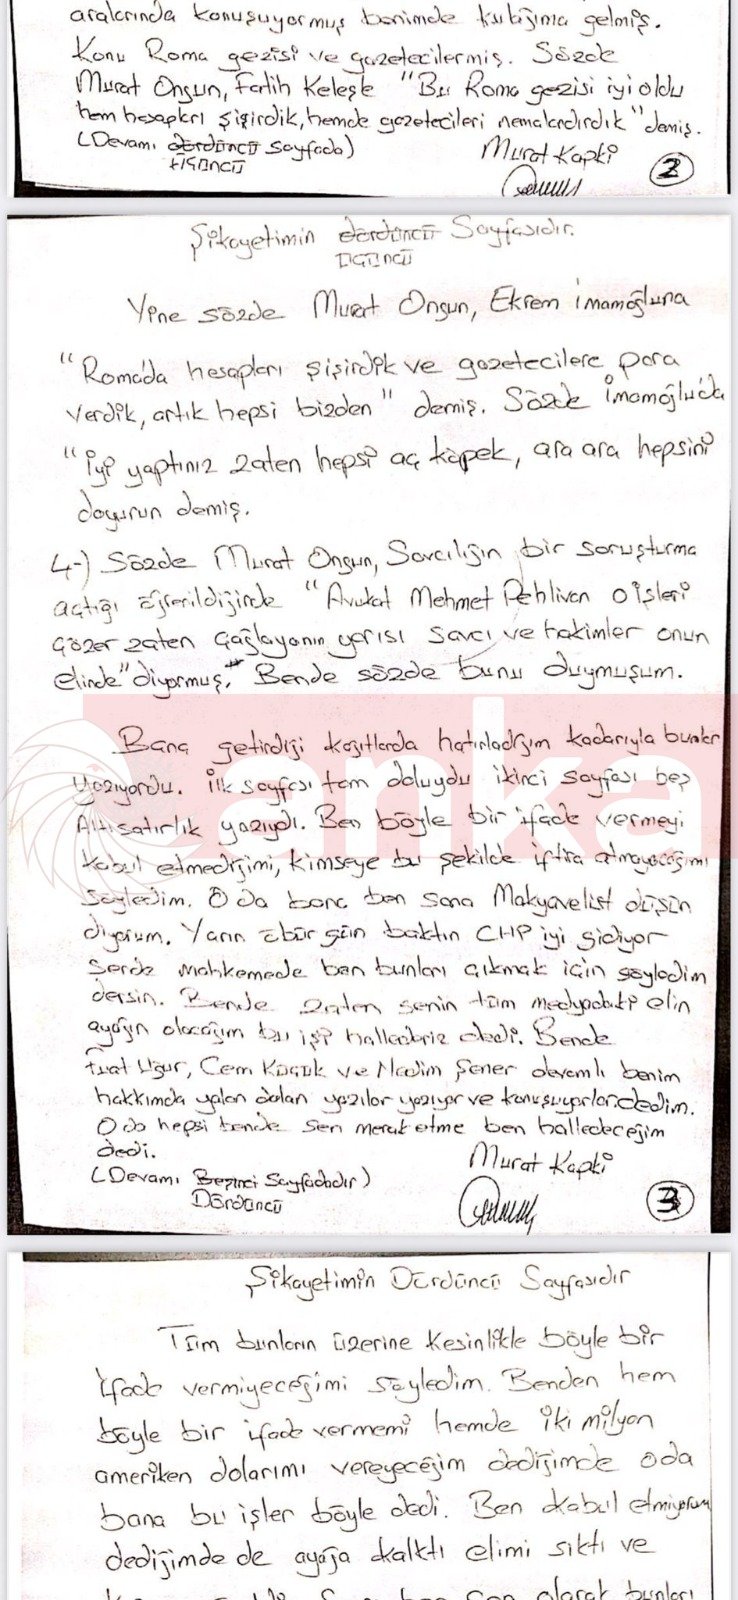 aralarında konuşuyormuş benimde kulağıma gelmiş.
Konu Roma gezisi ve gazetecilermiş. Sözde
Murat Ongun, Fatih Keleşe "Bu Roma gezisi iyi oldu
hem hesapları şişirdik, hemde gazetecileri nemalandırdık" demiş.
(Devamı dördüncü sayfada)
üçüncü
Murat Kapki
2
Şikayetimin dördüncü Sayfasıdır.
üçüncü
Yine sözde Murat Ongun, Ekrem İmamoğluna
"Romada hesapları şişirdik ve gazetecilere para
verdik, artık hepsi bizden" demiş. Sözde İmamoğluda
"İyi yaptınız zaten hepsi aç köpek, ara ara hepsini
doyurun demiş.
4-) Sözde Murat Ongun, Savcılığın bir soruşturma
açtığı öğrenildiğinde "Avukat Mehmet Pehlivan o işleri
çözer zaten Çağlayanın yarısı savcı ve hakimler onun
elinde" diyormuş. Bende sözde bunu duymuşum.
Bana getirdiği kağıtlarda hatırladığım kadarıyla bunlar
yazıyordu. İlk sayfası tam doluydu ikinci sayfası beş
Altı satırlık yazıydı. Ben böyle bir ifade vermeyi
kabul etmediğimi, kimseye bu şekilde iftira atmayacağımı
söyledim. O da bana ben sana Makyavelist düşün
diyorum. Yarın öbür gün baktın CHP iyi gidiyor
sende mahkemede ben bunları çıkmak için söyledim
dersin. Bende zaten senin tüm medyadaki elin
ayağın olacağım bu işi hallederiz dedi. Bende
Fuat Uğur, Cem Küçük ve Nedim Şener devamlı benim
hakkımda yalan dolan yazılar yazıyor ve konuşuyorlar dedim.
O da hepsi bende sen merak etme ben halledeceğim
dedi.
Murat Kapki
(Devamı Beşinci Sayfadadır)
Dördüncü
3
anka
Şikayetimin Dördüncü Sayfasıdır
Tüm bunların üzerine kesinlikle böyle bir
ifade vermiyeceğimi söyledim. Benden hem
böyle bir ifade vermemi hemde iki milyon
ameriken dolarımı vereyeceğim dediğimde oda
bana bu işler böyle dedi. Ben kabul etmiyorum
dediğimde de ayağa kalktı elimi sıktı ve
olarak bunları